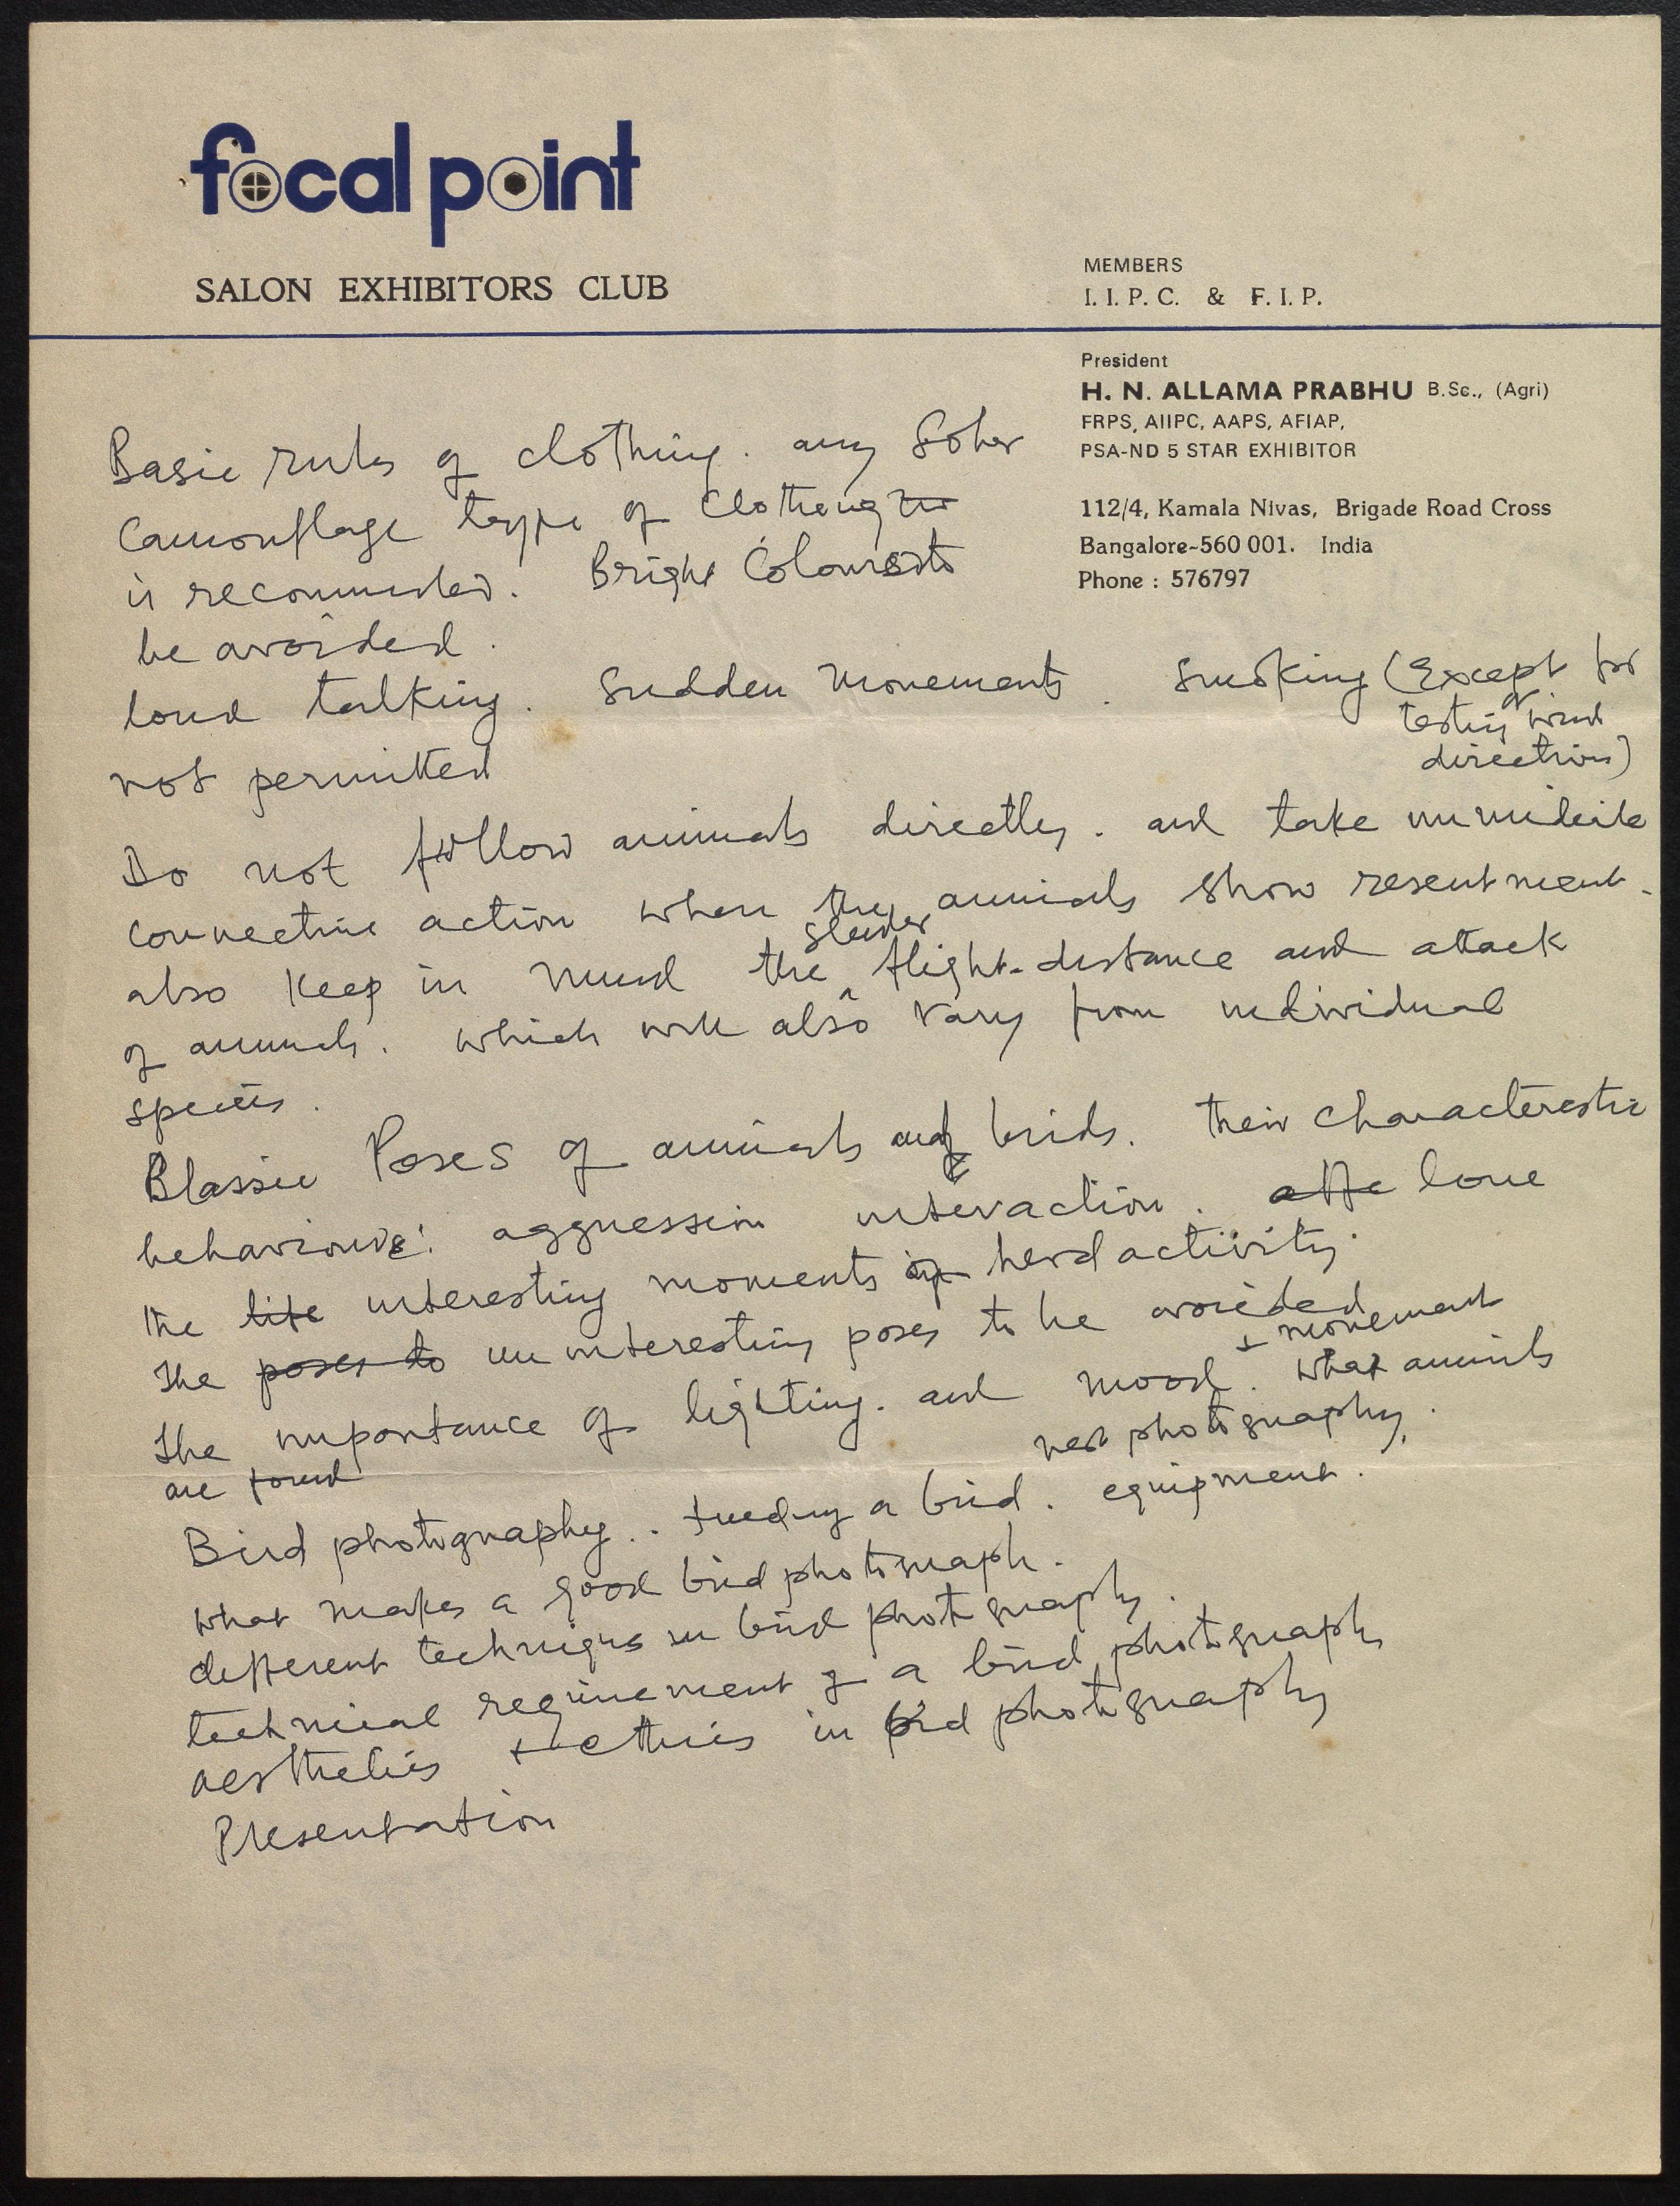 focal point
SALON EXHIBITORS CLUB
MEMBERS
I. I. P. C. & F. I. P.
President
H. N. ALLAMA PRABHU B.Sc., (Agri)
FRPS, AIIPC, AAPS, AFIAP,
PSA-ND 5 STAR EXHIBITOR
112/4, Kamala Nivas, Brigade Road Cross
Bangalore-560 001. India
Phone : 576797
Basic rules of clothing. any Sober
Camouflage type of clothing
is recommended. Bright Colours to
be avoided.
loud talking. Sudden Movements. Smoking (Except for
testing of wind
direction)
not permitted
Do not follow animals directly. and take immediate
corrective action when the animals show resentment.
also keep in mind the flight-distance and attack
of animals. which will also vary from individual
species.
Classic Poses of animals and birds. their characteristic
behaviour: aggression interaction. love
the life interesting moments in herd activity.
The poses to uninteresting poses to be avoided
+ movement
The importance of lighting. and mood. What animals
are found
nest photography.
Bird photography.. feeding a bird. equipment.
What makes a good bird photograph.
different techniques in bird photography.
technical requirement of a bird photograph
aesthetics + ethics in bird photography
Presentation